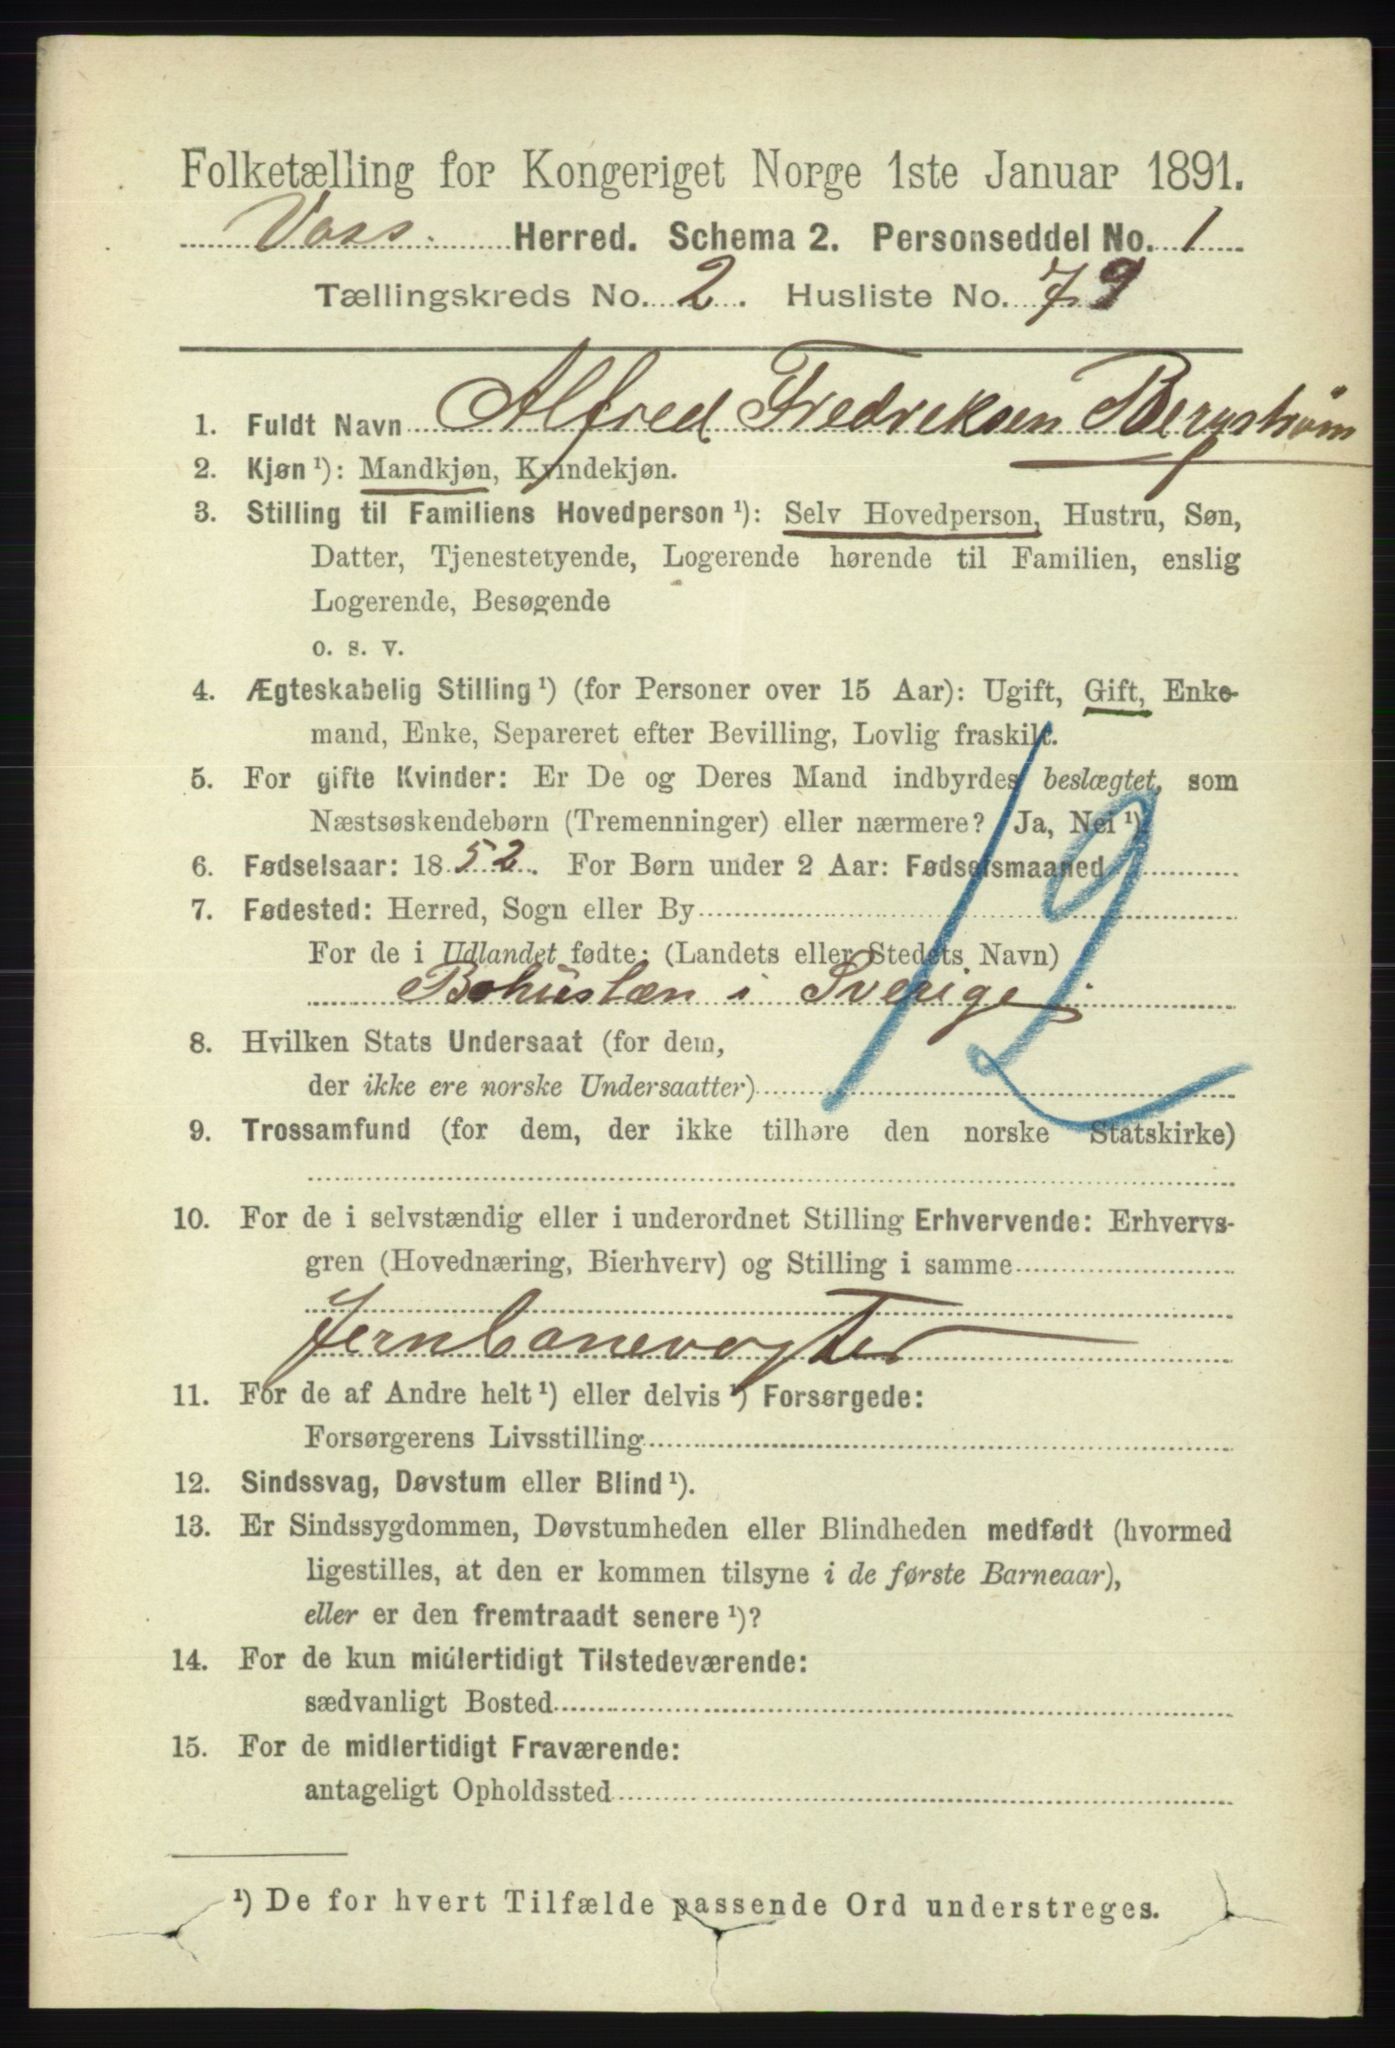 Folketælling for Kongeriget Norge 1ste Januar 1891.
Voss. Herred. Schema 2. Personseddel No. 1
Tællingskreds No. 2. Husliste No. 79
1. Fuldt Navn Alfred Fredreksen Bergstrøm
2. Kjøn ¹): Mandkjøn, Kvindekjøn.
3. Stilling til Familiens Hovedperson ¹): Selv Hovedperson, Hustru, Søn,
Datter, Tjenestetyende, Logerende hørende til Familien, enslig
Logerende, Besøgende
o. s. v.
4. Ægteskabelig Stilling ¹) (for Personer over 15 Aar): Ugift, Gift, Enke-
mand, Enke, Separeret efter Bevilling, Lovlig fraskilt.
5. For gifte Kvinder: Er De og Deres Mand indbyrdes beslægtet, som
Næstsøskendebørn (Tremenninger) eller nærmere? Ja, Nei ¹).
6. Fødselsaar: 1852. For Børn under 2 Aar: Fødselsmaaned
7. Fødested: Herred, Sogn eller By
For de i Udlandet fødte: (Landets eller Stedets Navn)
Bohuslæn i Sverige
12
8. Hvilken Stats Undersaat (for dem,
der ikke ere norske Undersaatter)
9. Trossamfund (for dem, der ikke tilhøre den norske Statskirke)
10. For de i selvstændig eller i underordnet Stilling Erhvervende: Erhvervs-
gren (Hovednæring, Bierhverv) og Stilling i samme
Jernbanevogter
11. For de af Andre helt ¹) eller delvis ¹) Forsørgede:
Forsørgerens Livsstilling
12. Sindssvag, Døvstum eller Blind ¹).
13. Er Sindssygdommen, Døvstumheden eller Blindheden medfødt (hvormed
ligestilles, at den er kommen tilsyne i de første Barneaar),
eller er den fremtraadt senere ¹)?
14. For de kun midlertidigt Tilstedeværende:
sædvanligt Bosted
15. For de midlertidigt Fraværende:
antageligt Opholdssted
¹) De for hvert Tilfælde passende Ord understreges.